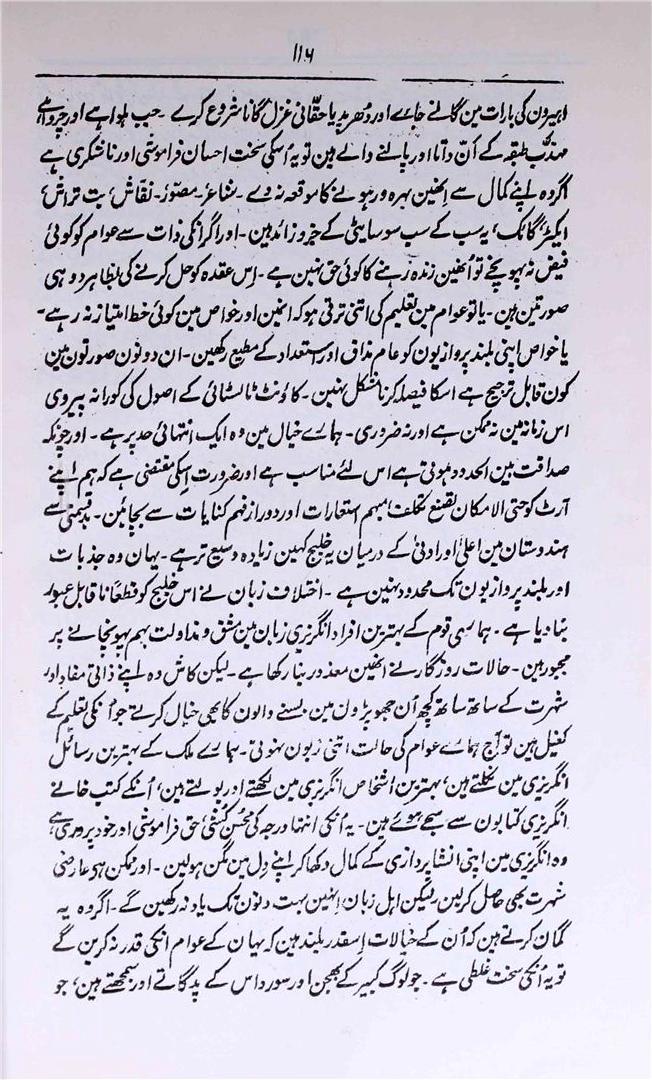 ۱۱۶
اہیرون کی بارات مین گانے جاے اور دُھرپد یا حقّانی غزل گانا شروع کرے ۔ جب ہلواہے اور چرواہے
مہذّب طبقہ کے اَن داتا اور پالنے والے ہین تو یہ اُسکی سخت احسان فراموشی اور ناشکری ہے
اگر وہ اپنے کمال سے اِنھین بہرہ ور ہونے کا موقعہ نہ دے ۔ شاعر ۔ مصوّر ۔ نقاش، بت تراش،
ایکٹر، گائک، یہ سب کے سب سوسایٹی کے جزو زائد ہین ۔ اور اگر انکی ذات سے عوام کو کوئی
فیض نہ پہونچے تو اُنھین زندہ رہنے کا کوئی حق نہین ہے ۔ اِس عقدہ کو حل کرنے کی بظاہر دو ہی
صورتین ہین ۔ یا تو عوام مین تعلیم کی اتنی ترقی ہو کہ انمین اور خواص مین کوئی خط امتیاز نہ رہے ۔
یا خواص اپنی بلند پروازیون کو عام مذاق اور استعداد کے مطیع رکھین ۔ ان دونون صورتون مین
کون قابل ترجیح ہے اسکا فیصلہ کرنا مشکل نہین ۔ کاؤنٹ ٹالسٹائی کے اصول کی کورانہ پیروی
اس زمانہ مین نہ ممکن ہے اور نہ ضروری ۔ ہمارے خیال مین وہ ایک انتہائی حد پر ہے ۔ اور چونکہ
صداقت بین الحدود ہوتی ہے اس لئے مناسب ہے اور ضرورت اِسکی مقتضی ہے کہ ہم اپنے
آرٹ کو حتی الامکان تصنع تکلف مبہم استعارات اور دور از فہم کنایات سے بچائین ۔ بدقسمتی سے
ہندوستان مین اعلیٰ اور ادنیٰ کے درمیان یہ خلیج کہین زیادہ وسیع تر ہے ۔ یہان وہ جذبات
اور بلند پروازیون تک محدود نہین ہے ۔ اختلاف زبان نے اس خلیج کو قطعاً ناقابل عبور
بنا دیا ہے ۔ ہماری قوم کے بہترین افراد انگریزی زبان مین مشق و مذاولت بہم پہونچانے پر
مجبور ہین ۔ حالات روزگار نے انھین معذور بنا رکھا ہے ۔ لیکن کاش وہ اپنے ذاتی مفاد اور
شہرت کے ساتھ ساتھ کچھ اُن جھوپڑون مین بسنے والون کا بھی خیال کرتے جو اُنکی تعلیم کے
کفیل ہین تو آج ہمارے عوام کی حالت اتنی زبون نہوتی ۔ ہمارے ملک کے بہترین رسائل
انگریزی مین نکلتے ہین، بہترین اشخاص انگریزی مین لکھتے اور بولتے ہین، اُنکے کتب خانے
انگریزی کتابون سے سجے ہوئے ہین ۔ یہ اُنکی انتہا درجہ کی محسن کُشی، حق فراموشی اور خود پروری ہے
وہ انگریزی مین اپنی انشا پردازی کے کمال دکھا کر اپنے دِل مین مگن ہولین ۔ اور ممکن ہی عارضی
شہرت بھی حاصل کرلین لیکن اہل زبان اِنھین بہت دنون تک یاد نہ رکھین گے ۔ اگر وہ یہ
گمان کرتے ہین کہ اُن کے خیالات اِسقدر بلند ہین کہ یہان کے عوام انکی قدر نہ کرین گے
تو یہ اُنکی سخت غلطی ہے ۔ جو لوگ کبیر کے بھجن اور سورداس کے پد گاتے اور سمجھتے ہین، جو